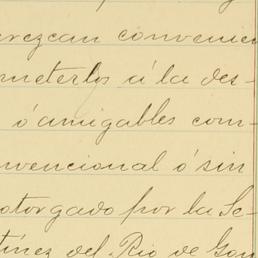 arezcan convenien
meterlos á la des-
ó amigables com-
nvencional ó sin
otorgado por la Se-
tínez del Rio de Gon